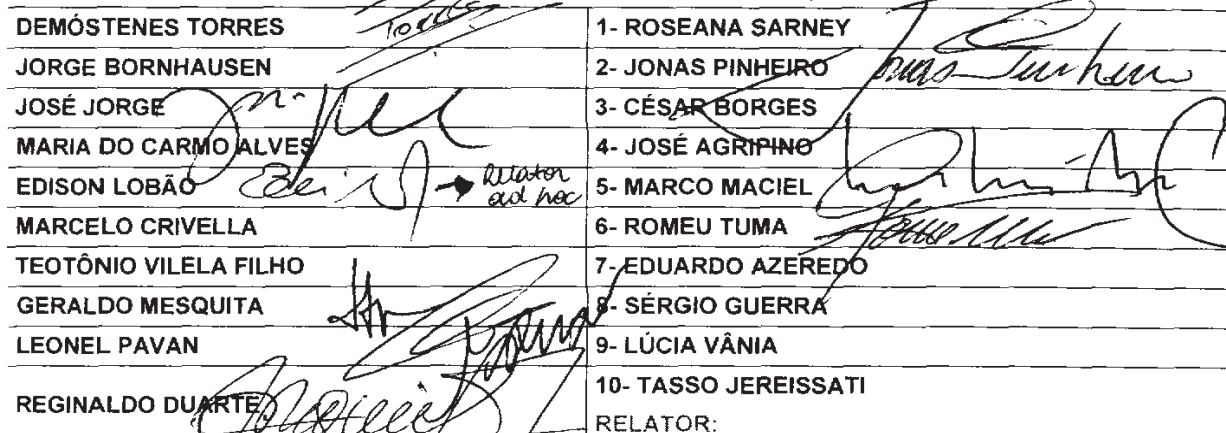 DEMÓSTENES TORRES Torres 1- ROSEANA SARNEY
JORGE BORNHAUSEN 2- JONAS PINHEIRO Jonas Pinheiro
JOSÉ JORGE 3- CÉSAR BORGES
MARIA DO CARMO ALVES 4- JOSÉ AGRIPINO
EDISON LOBÃO → Relator ad hoc 5- MARCO MACIEL
MARCELO CRIVELLA 6- ROMEU TUMA
TEOTÔNIO VILELA FILHO 7- EDUARDO AZEREDO
GERALDO MESQUITA 8- SÉRGIO GUERRA
LEONEL PAVAN 9- LÚCIA VÂNIA
REGINALDO DUARTE 10- TASSO JEREISSATI
RELATOR: